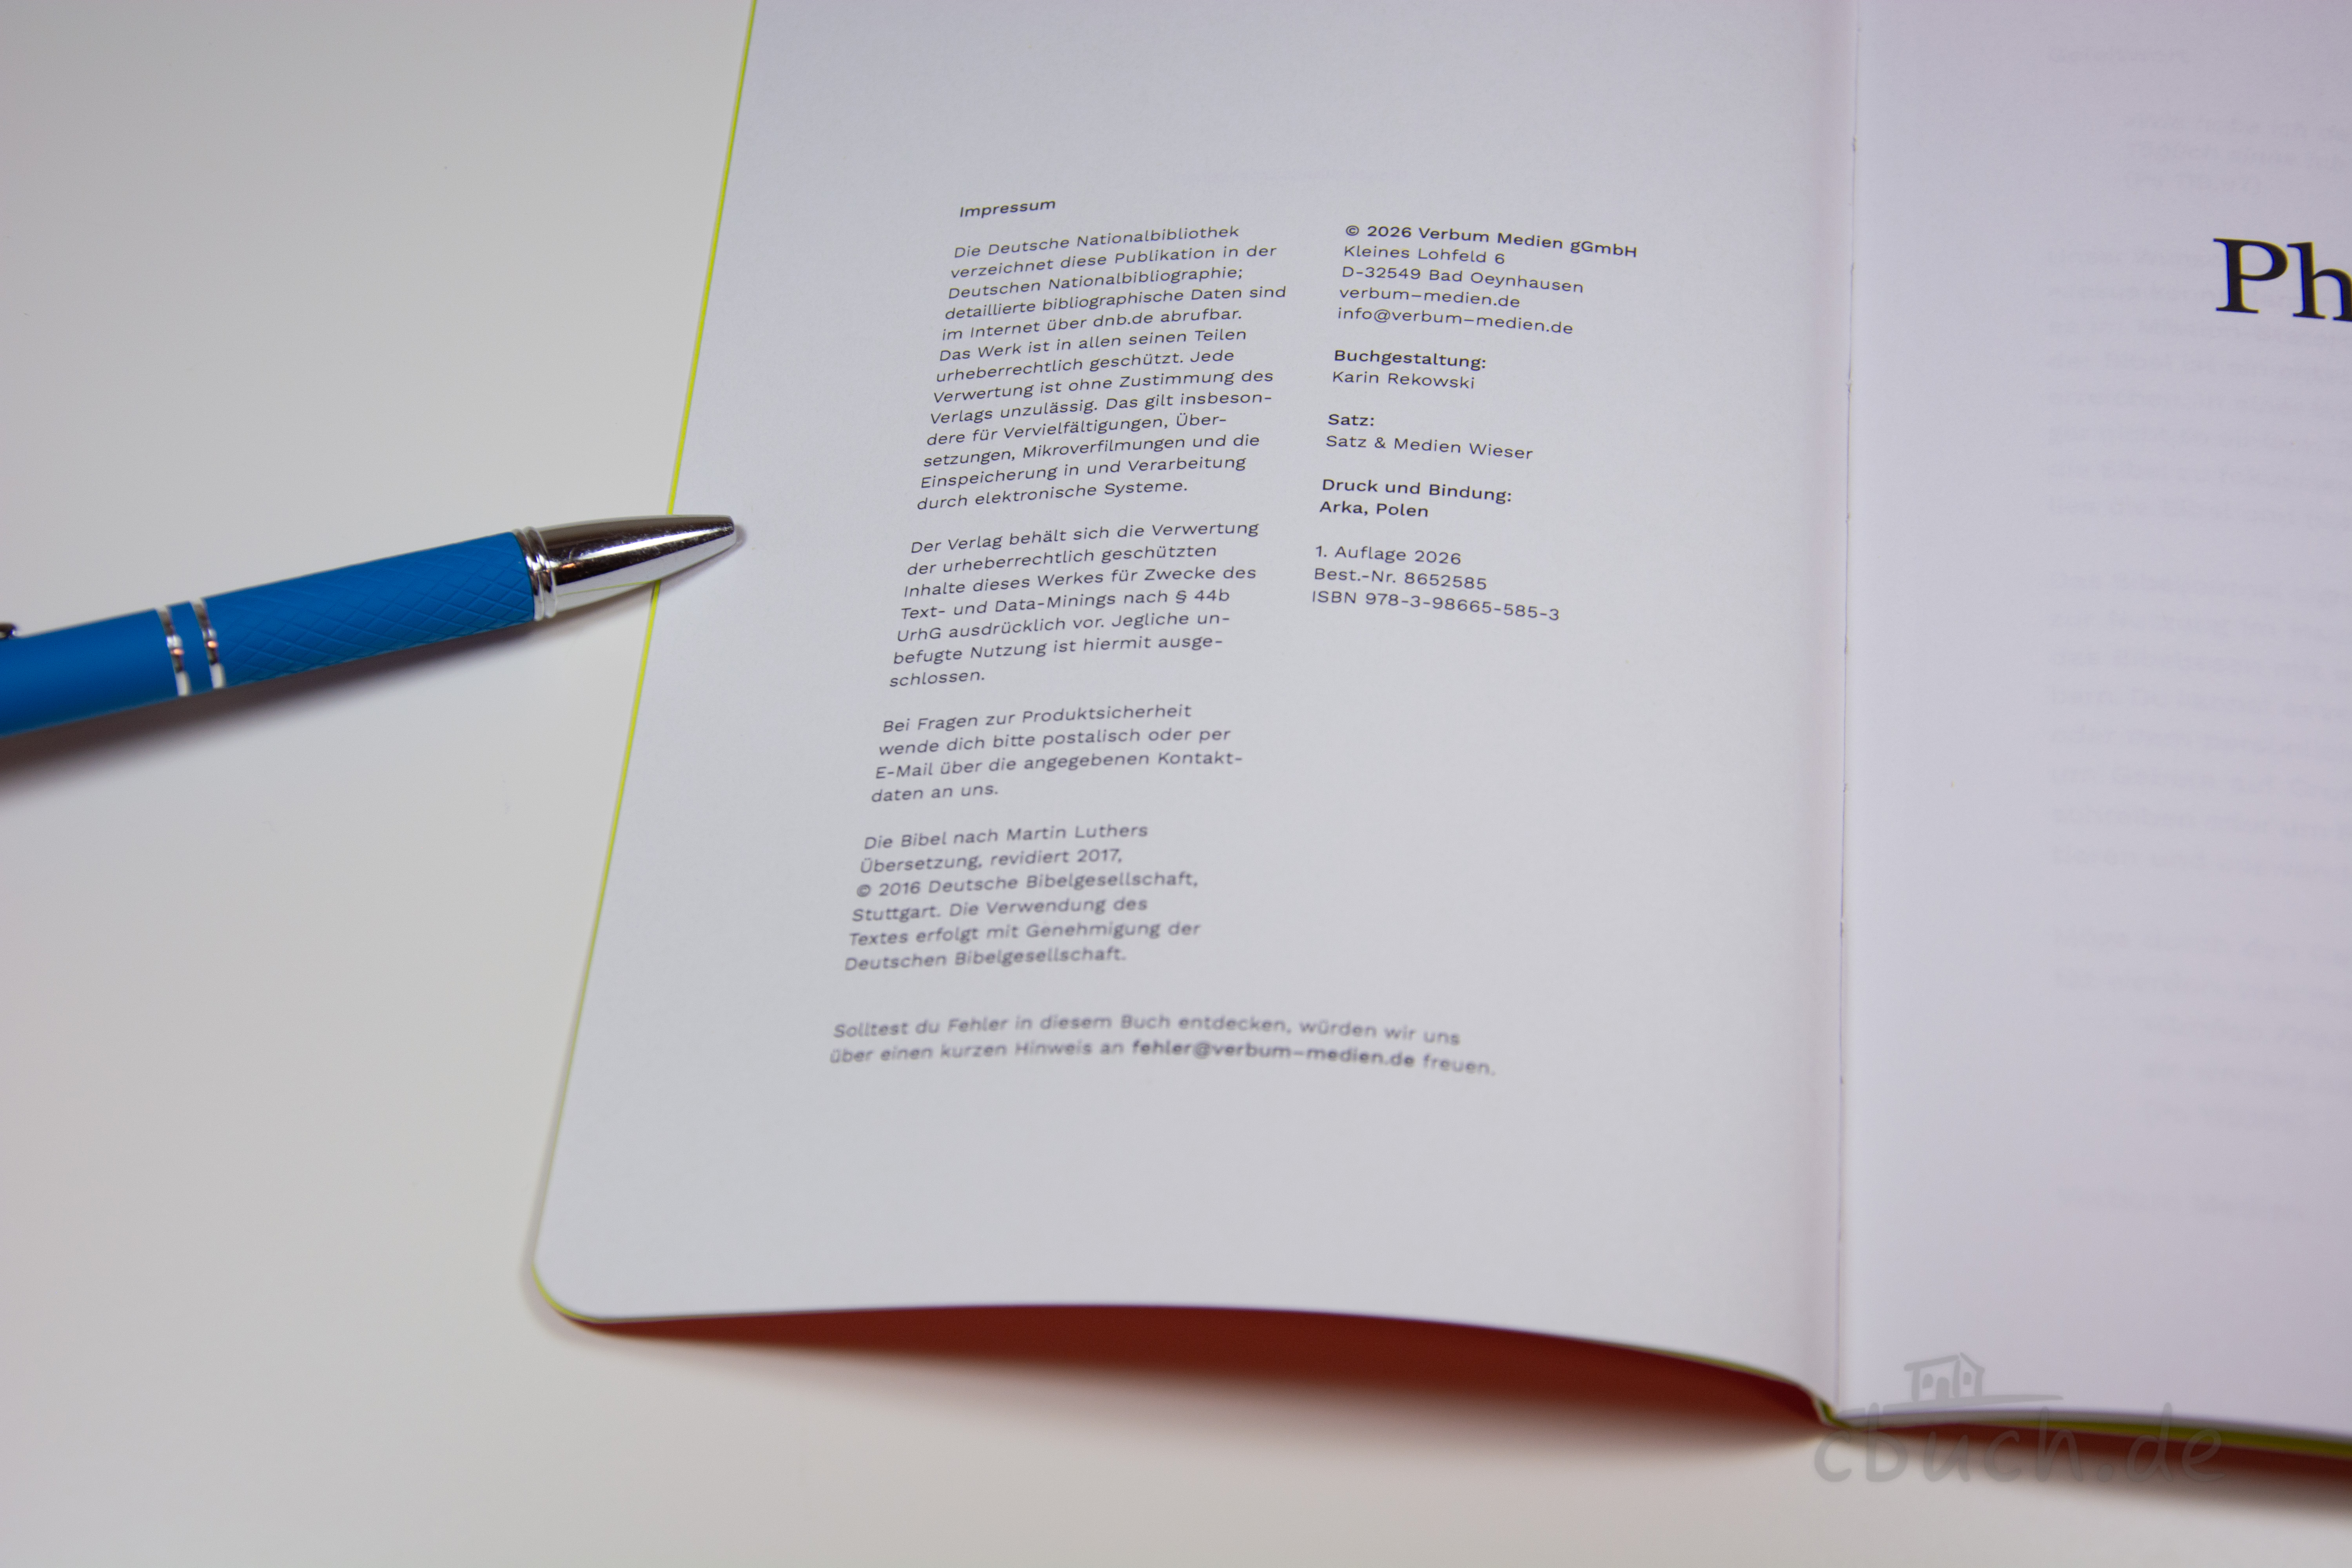 Impressum
Die Deutsche Nationalbibliothek
verzeichnet diese Publikation in der
Deutschen Nationalbibliographie;
detaillierte bibliographische Daten sind
im Internet über dnb.de abrufbar.
Das Werk ist in allen seinen Teilen
urheberrechtlich geschützt. Jede
Verwertung ist ohne Zustimmung des
Verlags unzulässig. Das gilt insbeson-
dere für Vervielfältigungen, Über-
setzungen, Mikroverfilmungen und die
Einspeicherung in und Verarbeitung
durch elektronische Systeme.
Der Verlag behält sich die Verwertung
der urheberrechtlich geschützten
Inhalte dieses Werkes für Zwecke des
Text- und Data-Minings nach § 44b
UrhG ausdrücklich vor. Jegliche un-
befugte Nutzung ist hiermit ausge-
schlossen.
Bei Fragen zur Produktsicherheit
wende dich bitte postalisch oder per
E-Mail über die angegebenen Kontakt-
daten an uns.
Die Bibel nach Martin Luthers
Übersetzung, revidiert 2017,
© 2016 Deutsche Bibelgesellschaft,
Stuttgart. Die Verwendung des
Textes erfolgt mit Genehmigung der
Deutschen Bibelgesellschaft.
© 2026 Verbum Medien gGmbH
Kleines Lohfeld 6
D-32549 Bad Oeynhausen
verbum-medien.de
info@verbum-medien.de
Buchgestaltung:
Karin Rekowski
Satz:
Satz & Medien Wieser
Druck und Bindung:
Arka, Polen
1. Auflage 2026
Best.-Nr. 8652585
ISBN 978-3-98665-585-3
Solltest du Fehler in diesem Buch entdecken, würden wir uns
über einen kurzen Hinweis an fehler@verbum-medien.de freuen.
Ph
cbuch.de